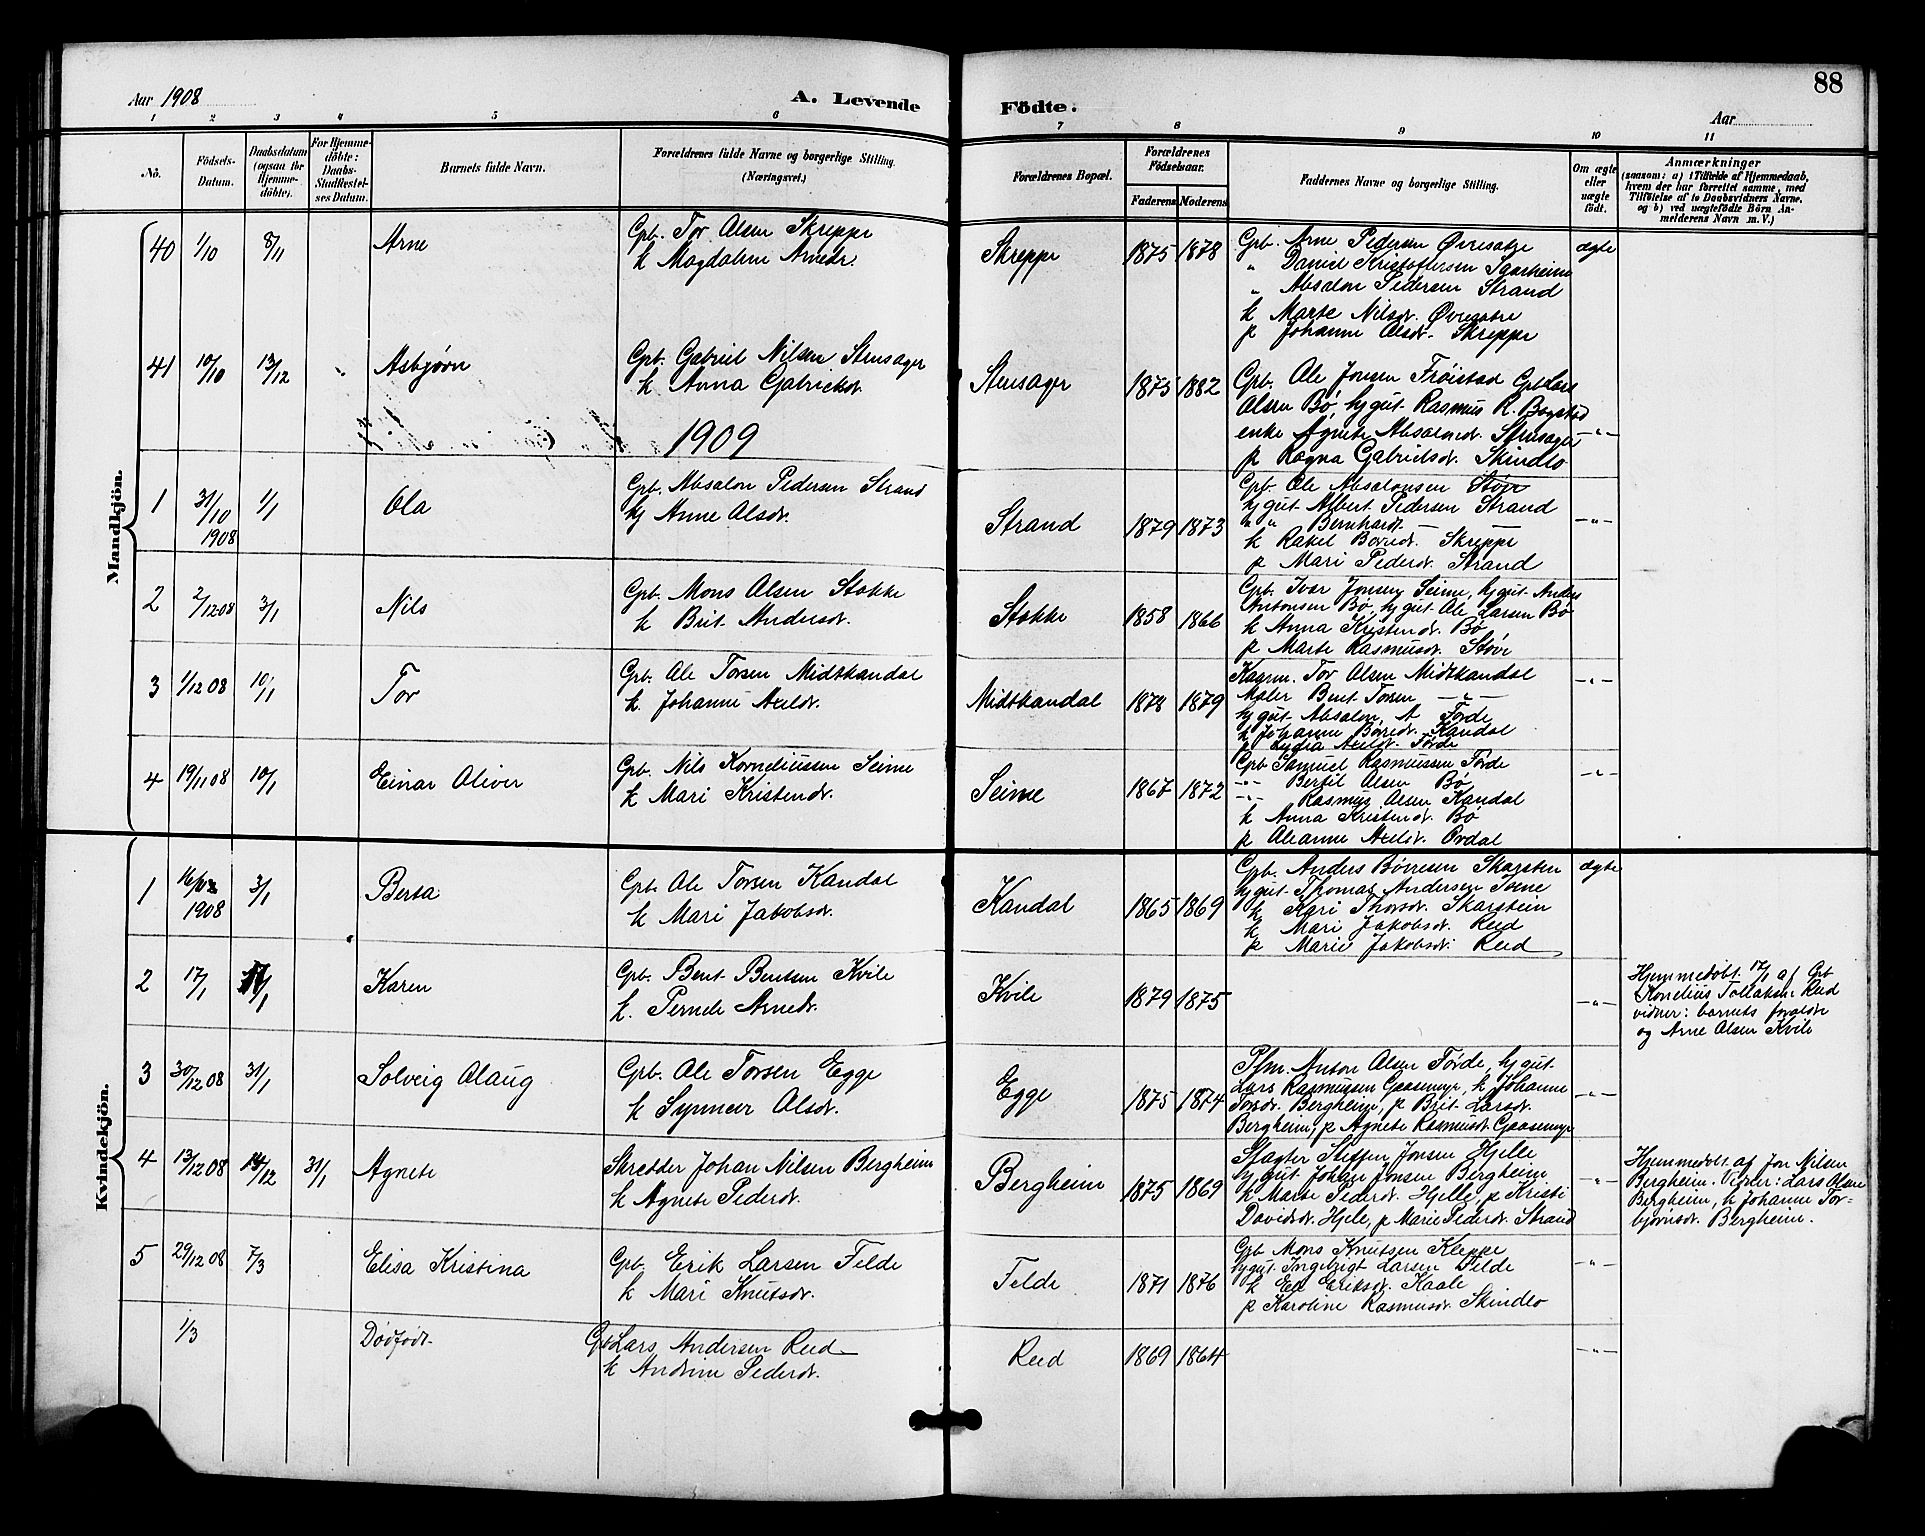 88
Aar 1908
A. Levende Födte.
Aar
1 2 3 4 5 6 7 8 9 10 11
No. Födsels-Datum. Daabsdatum (ogsaa for Hjemme-döbte). For Hjemme-döbte: Daabs-Stadfæstel-ses Datum. Barnets fulde Navn. Forældrenes fulde Navne og borgerlige Stilling. (Næringsvei.) Forældrenes Bopæl. Forældrenes Födselsaar. Faderens Moderens Faddernes Navne og borgerlige Stilling. Om ægte eller uægte födt. Anmærkninger (saasom: a) i Tilfælde af Hjemmedaab, hvem der har forrettet samme, med Tilföielse af to Daabsvidners Navne. og b) ved uægtefödte Börn Anmelderens Navn m. V.)
Mandkjön.
40 1/10 8/11 Arne
Grb. Tor Olsen Skreppe
k Magdalene Arnedr.
Skreppe 1875 1878
Grb. Arne Pedersen Øvresætre
" Daniel Kristoffersen Saarheim
" Absalon Pedersen Strand
k Marte Nilsdr. Øvresætre
p Johanne Olsdr. Skreppe
ægte
41 10/10 13/12 " Asbjørn
Grb. Gabriel Nilsen Stensager
k Anna Gabrielsdr.
Stensager 1875 1882
Grb. Ole Jonsen Frøistad Grb Lars
Olsen Bø, hj gut. Rasmus R. Bogstad
enke Agnete Absalonsdr. Stensager
p Ragna Gabrielsdr. Skindlo
—"—
1909
1 31/10 1908 1/1 Ola
Grb. Absalon Pedersen Strand
k Anne Olsdr.
Strand 1879 1873
Grb. Ole Absalonsen Støve
hj gut Albert Pedersen Strand
" " Bernhardt — —
k Rakel Børredr. Skreppe
p Mari Pedersdr. Strand
—"—
2 2/12 08 3/1 Nils
Grb. Mons Olsen Stokke
k Brit Andersdr.
Stokke 1858 1866
Grb. Ivar Jonsen Seime, hj gut Anders
Antonsen Bø, hj gut Ole Larsen Bø
k Anna Kristendr. Bø
p Marte Rasmusdr. Støve
3 1/12 08 10/1 Tor
Grb. Ole Torsen Midtkandal
k. Johanne Axeldr.
Midtkandal 1878 1879
Kaarm. Tor Olsen Midtkandal
Maler Bent Torsen —"—
hj gut Absalon A Förde
k Johanne Börredr. Kandal
p Lydia Axeldr. Förde
—"—
4 19/11 08 10/1 Einar Oliver
Grb. Nils Korneliussen Seime
k Mari Kristendr.
Seime 1867 1872
Grb Samuel Rasmussen Förde
—"— Bertil Olsen Bø
—"— Rasmus Olsen Kandal
k Anna Kristendr. Bø
p Oleanne Axeldr. Ordal
—"—
Kvindekjön.
1 1908 3/1 Berta
Grb. Ole Torsen Kandal
k Mari Jakobsdr.
Kandal 1865 1869
Grb. Anders Børresen Skarstein
hj gut Thomas Andersen
k Kari Thorsdr. Skarstein
k Mari Jakobsdr. Reed
p Marie Jakobsdr. Reed
ægte
2 17/1 17/1 Karen
Grb. Bent Bentsen Kvile
k. Pernele Arnedr.
Kvile 1879 1875
—"—
Hjemmedøbt 17/1 af Grb
Kornelius Tollaksen Reed
vidner: barnets forældre
og Arne Olsen Kvile
3 30/12 08 31/1 Solveig Olaug
Grb. Ole Torsen Egge
k Synneve Olsdr.
Egge 1875 1874
Pfm. Anton Olsen Förde, hj gut
Lars Rasmussen Gaasemyr, k Johanne
Torsdr. Bergheim, p Brit Larsdr.
Bergheim, p Agnete Rasmusdr Gaasemyr
—"—
4 13/12 08 14/12 31/1 Agnete
Skredder Johan Nilsen Bergheim
k Agnete Pedersdr.
Bergheim 1875 1869
Slagter Steffen Jonsen Hjelle
hj gut Johan Jonsen Bergheim
k Marte Pedersdr. Hjelle, p Kristi
Davidsdr. Hjelle, p Marie Pedersdr. Strand
—"—
Hjemmedøbt af Jon Nilsen
Bergheim. Vidner: Lars Olsen
Bergheim, k Johanne Tor-
bjørnsdr. Bergheim.
5 29/12 08 7/3 Elisa Kristina
Grb. Erik Larsen Felde
k Mari Knutsdr.
Felde 1871 1876
Grb Mons Knutsen Kleppe
hj gut Ingebrigt Larsen Felde
k Eriksdr. Kaale
p Karoline Rasmusdr. Skindlo
—"—
1/3 Dødfødt.
Grb Lars Andersen Reed
k Andrine Pedersdr.
Reed 1869 1864
—"—